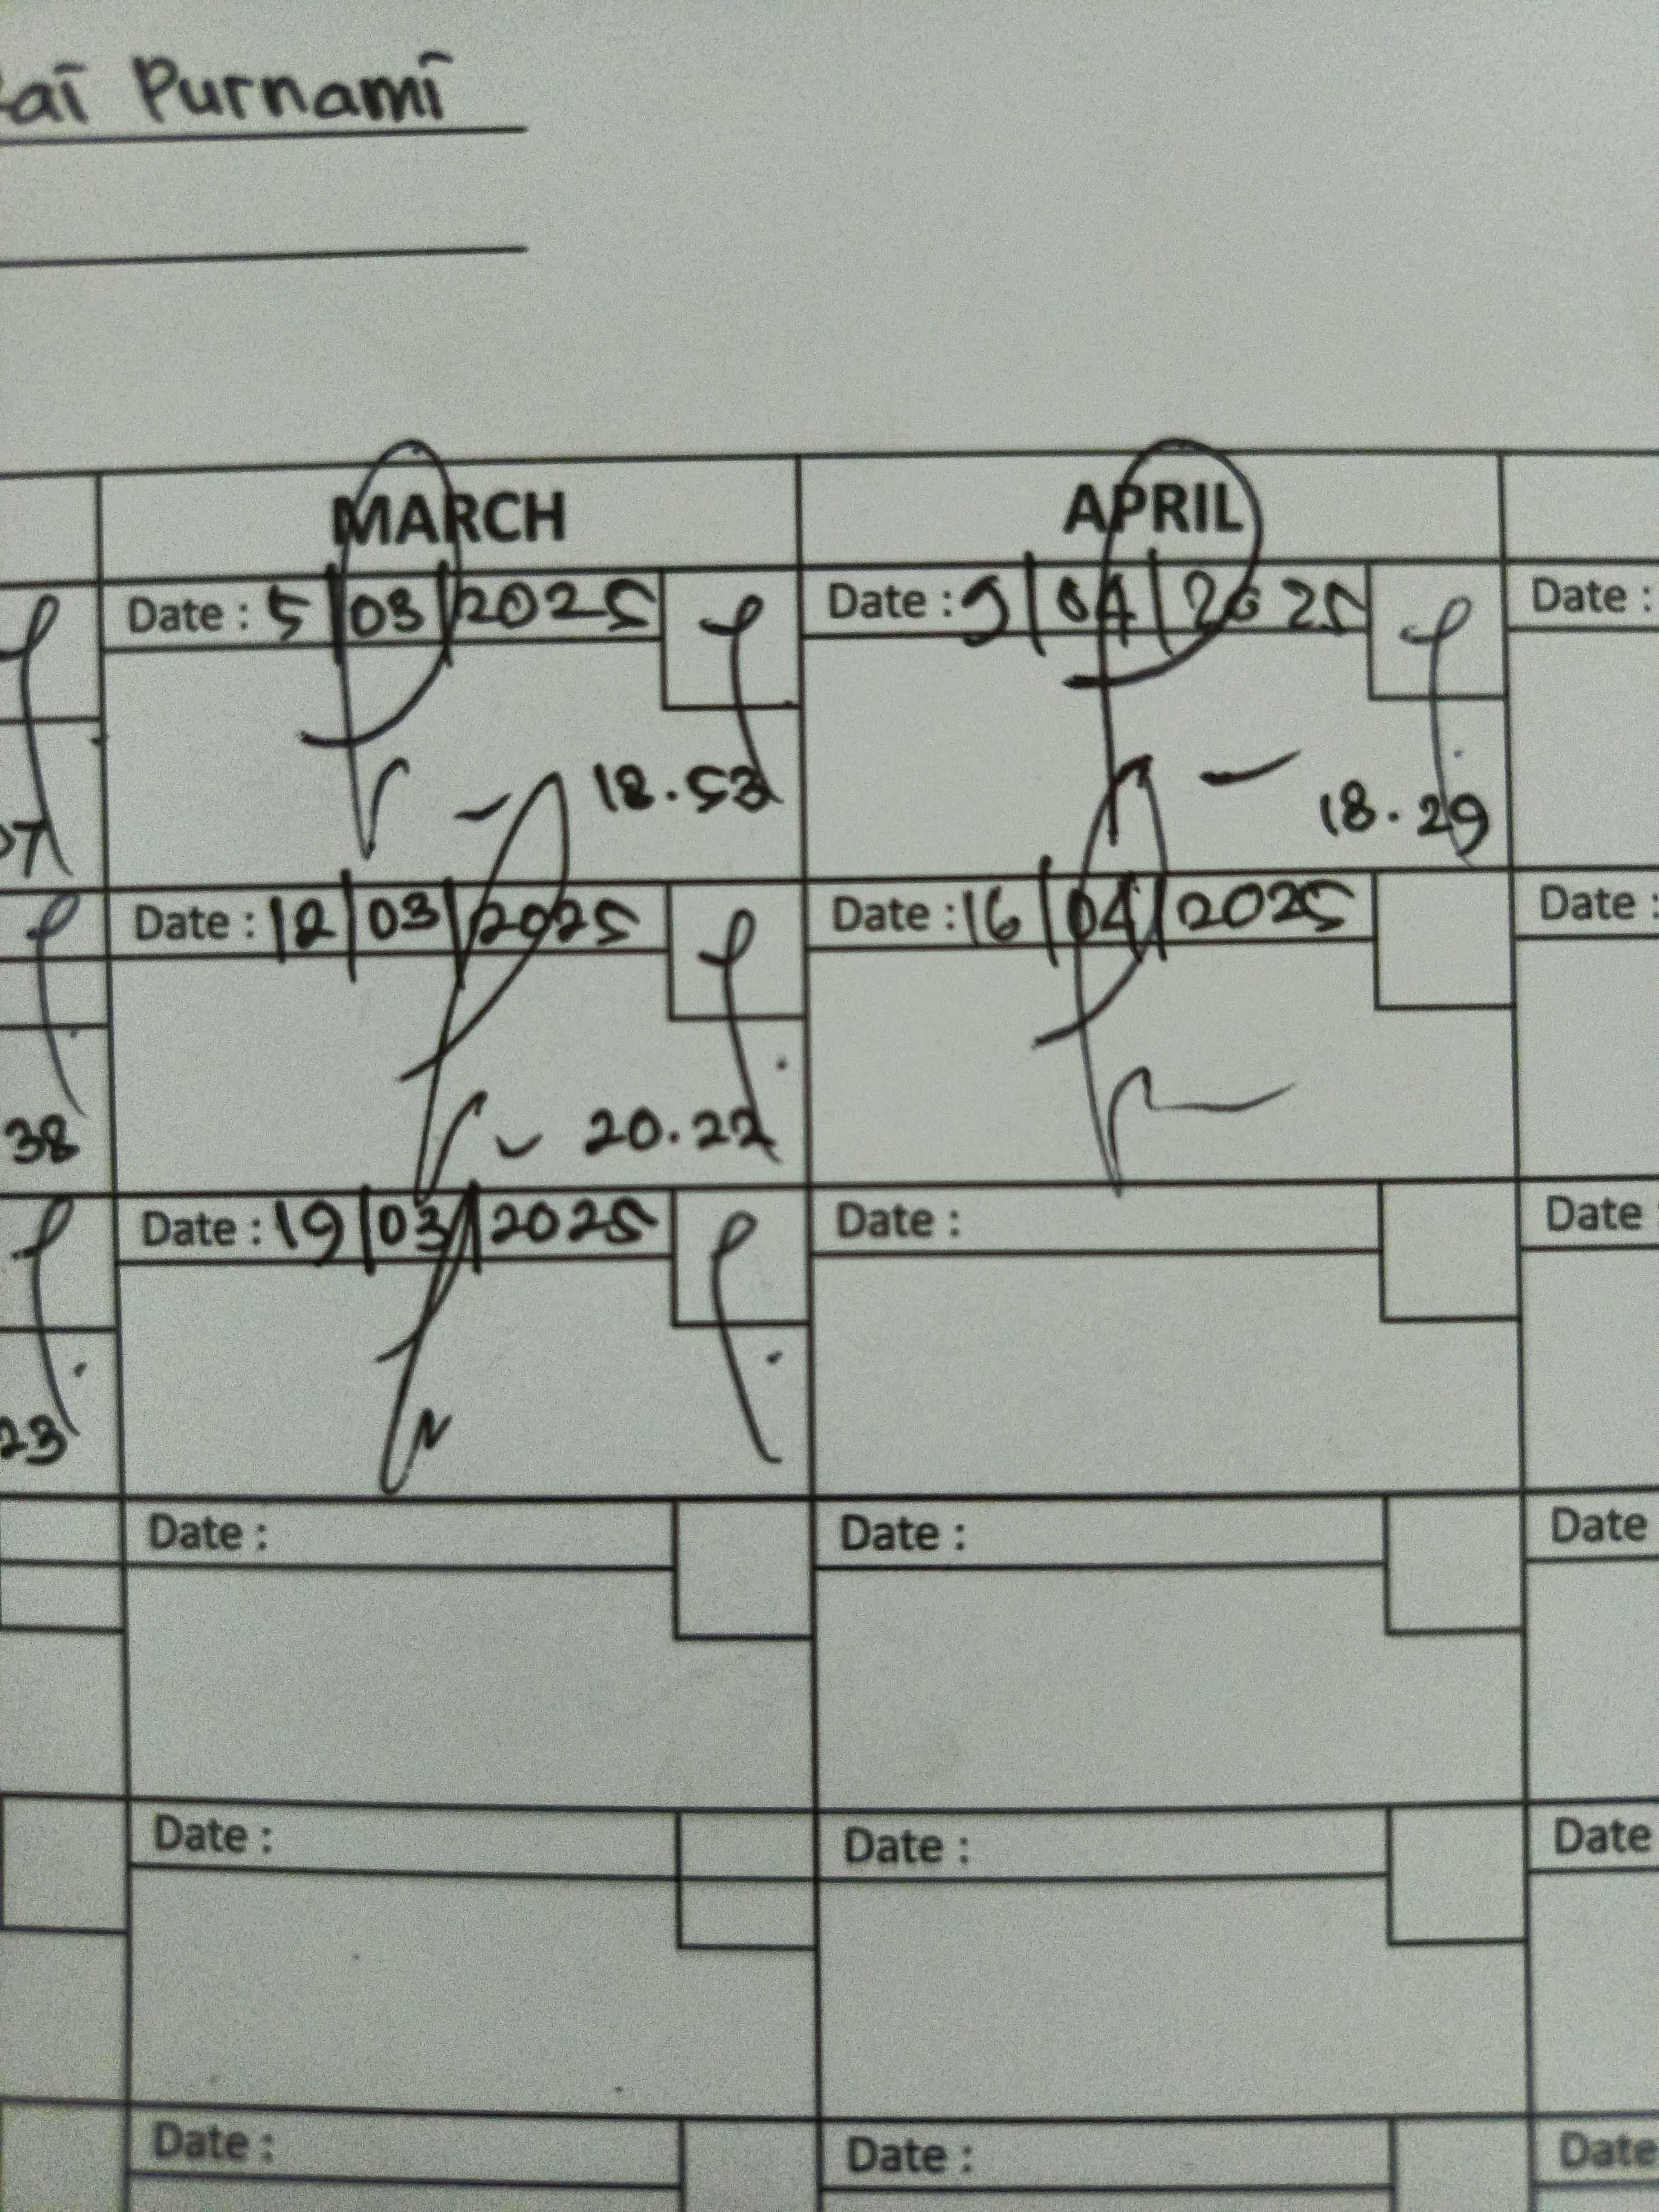 Purnami
MARCH APRIL
Date : 5/03/2025 Date : 9/04/2025 Date :
18.53 18.29
07
Date : 12/03/2025 Date : 16/04/2025 Date :
38 20.22
Date : 19/03/2025 Date : Date
23
Date : Date : Date
Date : Date : Date
Date : Date : Date